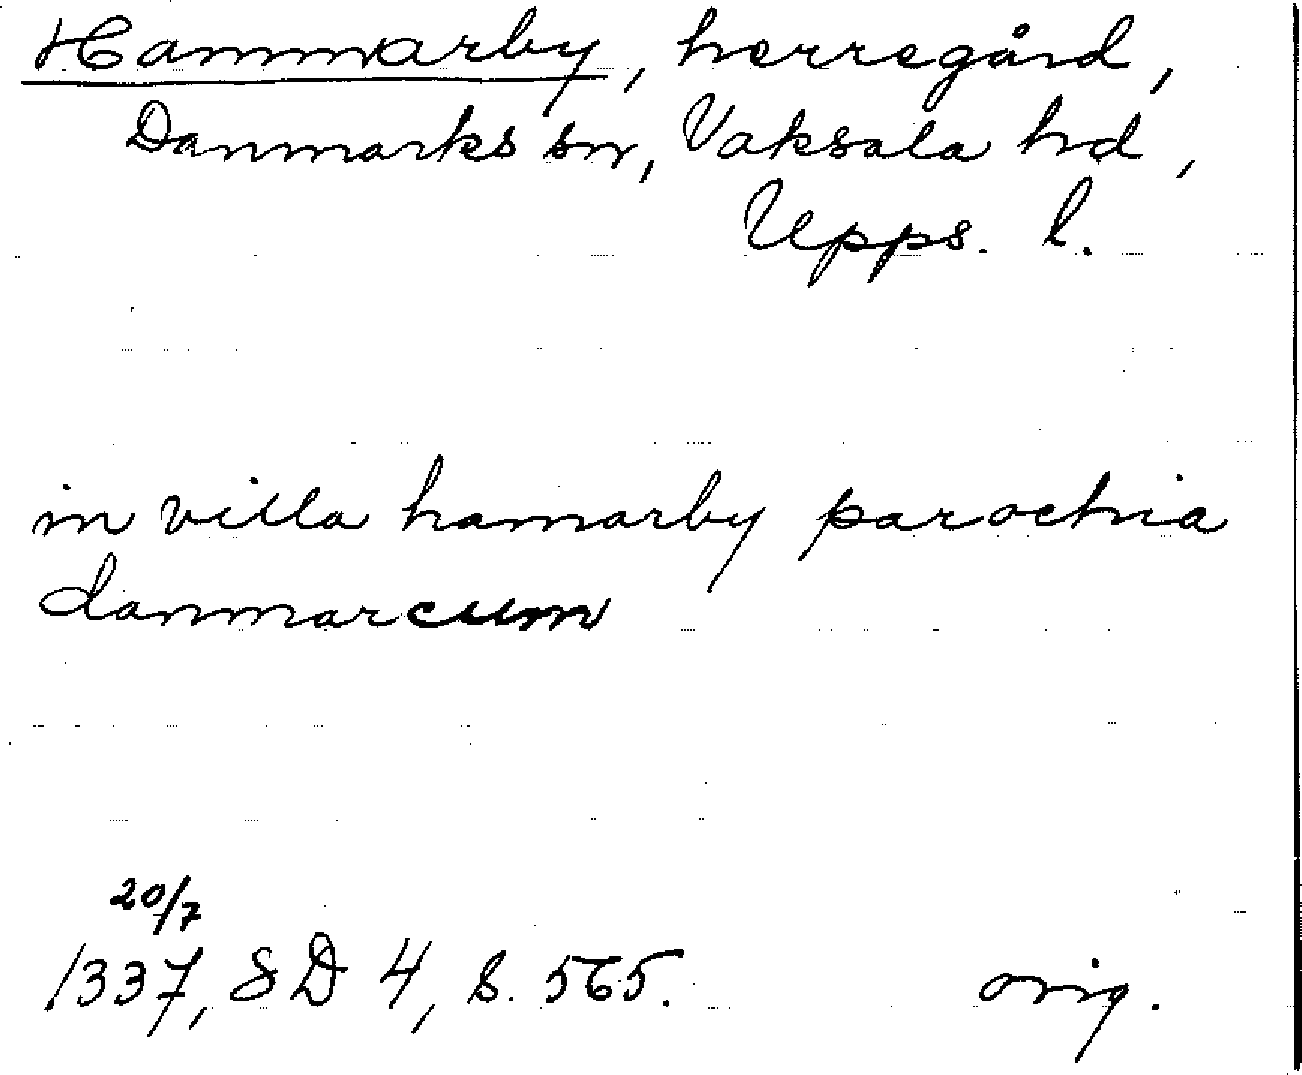 Hammarby, herregård,
Danmarks sn, Vaksala hd,
Upps. l.
in villa hamarby parochia
danmarcum
20/7
1337, SD 4, s. 565. orig.